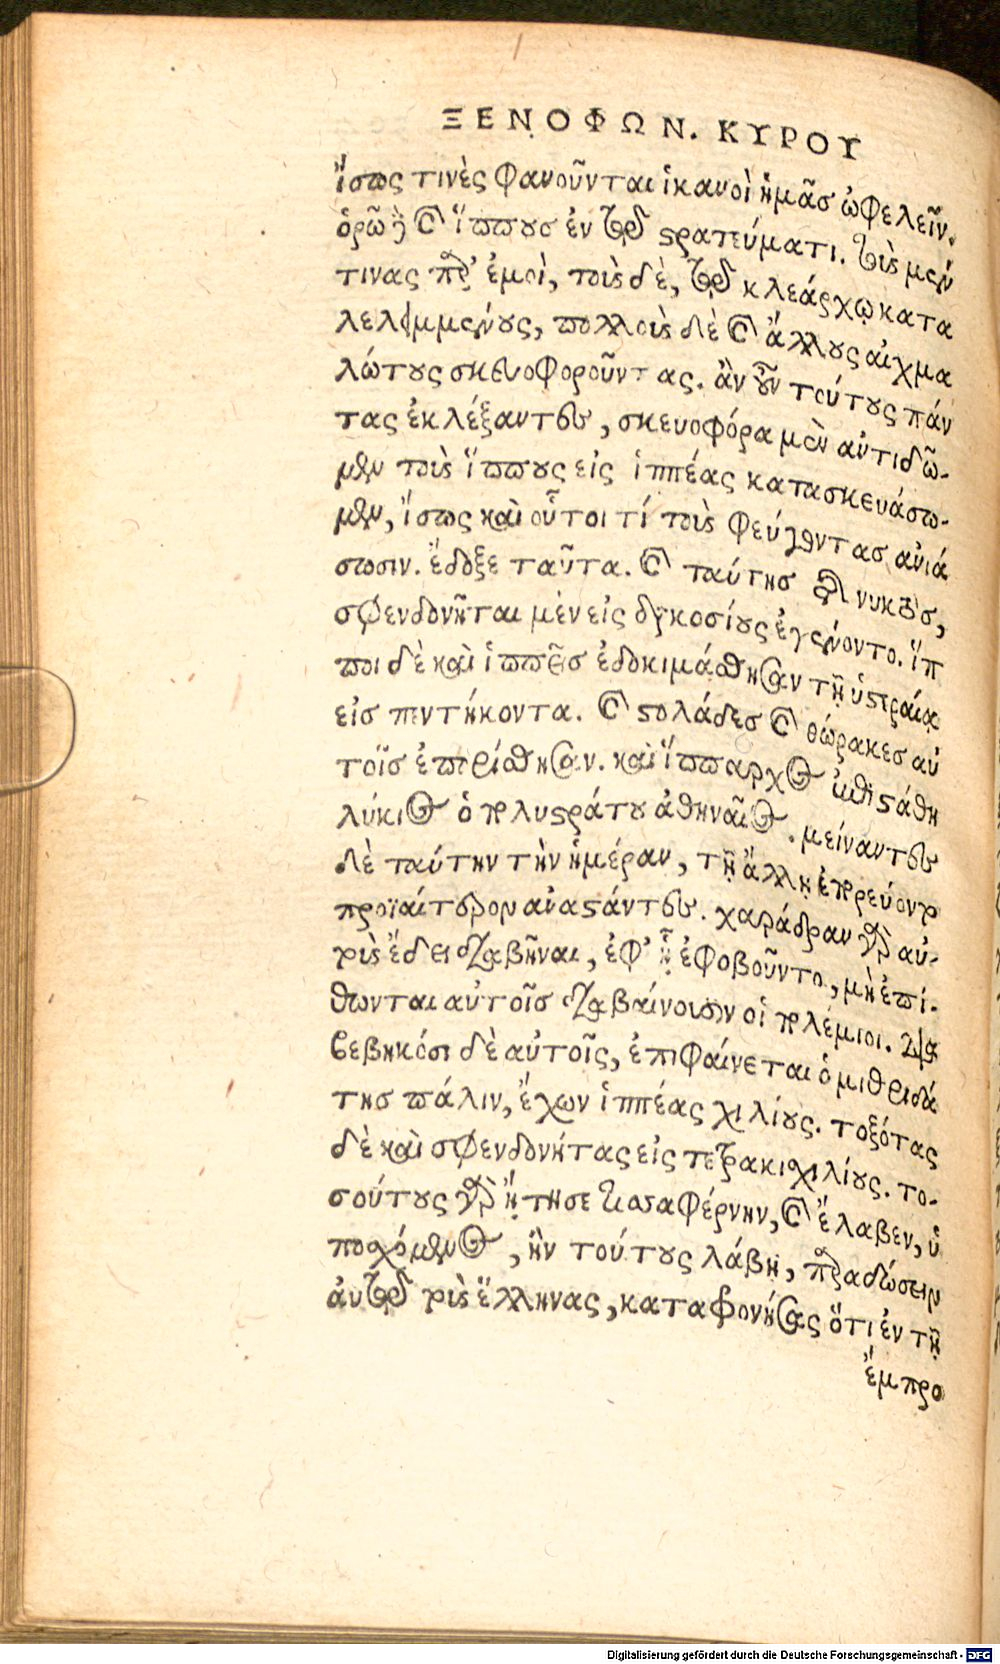 ΞΕΝΟΦΩΝ. ΚΥΡΟΥ
ἴσως τινὲς φανοῦνται ἱκανοὶ ἡμᾶσ ὠφελεῖν.
ὁρῶ δὲ καὶ ἵππουσ ἐν τῷ στρατεύματι. τοὺς μέν
τινας παρ’ ἐμοὶ, τοὺς δὲ, τῷ κλεάρχῳ κατα
λελειμμένους, πολλοὺς δὲ καὶ ἄλλους αἰχμα
λώτους σκευοφοροῦντας. ἂν οὖν τούτους πάν
τας ἐκλέξαντες, σκευοφόρα μὲν ἀντιδῶ-
μεν τοὺς ἵππους εἰς ἱππέας κατασκευάσω-
μεν, ἴσως καὶ οὗτοι τί τοὺς φεύγοντασ ἀνιά
σωσιν. ἔδοξε ταῦτα. καὶ ταύτησ τῆς νυκτὸσ,
σφενδονῆται μὲν εἰς διακοσίους ἐγένοντο. ἵπ
ποι δὲ καὶ ἱππεῖσ ἐδοκιμάσθησαν τῇ ὑστεραίᾳ
εἰσ πεντήκοντα. καὶ στολάδεσ καὶ θώρακεσ αὐ
τοῖσ ἐπορίσθησαν. καὶ ἵππαρχος ἐπεστάθη
λύκιος ὁ πολυστράτου ἀθηναῖος. μείναντες
δὲ ταύτην τὴν ἡμέραν, τῇ ἄλλῃ ἐπορεύοντο
πρωϊαίτερον ἀναστάντες. χαράδραν γὰρ αὐ-
τοὺς ἔδει διαβῆναι, ἐφ’ ᾗ ἐφοβοῦντο, μὴ ἐπί-
θωνται αὐτοῖσ διαβαίνουσιν οἱ πολέμιοι. δια
βεβηκόσι δὲ αὐτοῖς, ἐπιφαίνεται ὁ μιθριδά
τησ πάλιν, ἔχων ἱππέας χιλίους. τοξότας
δὲ καὶ σφενδονήτας εἰς τετρακιχιλίους. το-
σούτους γὰρ ᾔτησε τισσαφέρνην, καὶ ἔλαβεν, ὑ
ποσχόμενος, ἢν τούτους λάβῃ, παραδώσειν
αὐτῷ τοὺς ἕλληνας, καταφρονήσας ὅτι ἐν τῇ
ἔμπρο
Digitalisierung gefördert durch die Deutsche Forschungsgemeinschaft - DFG